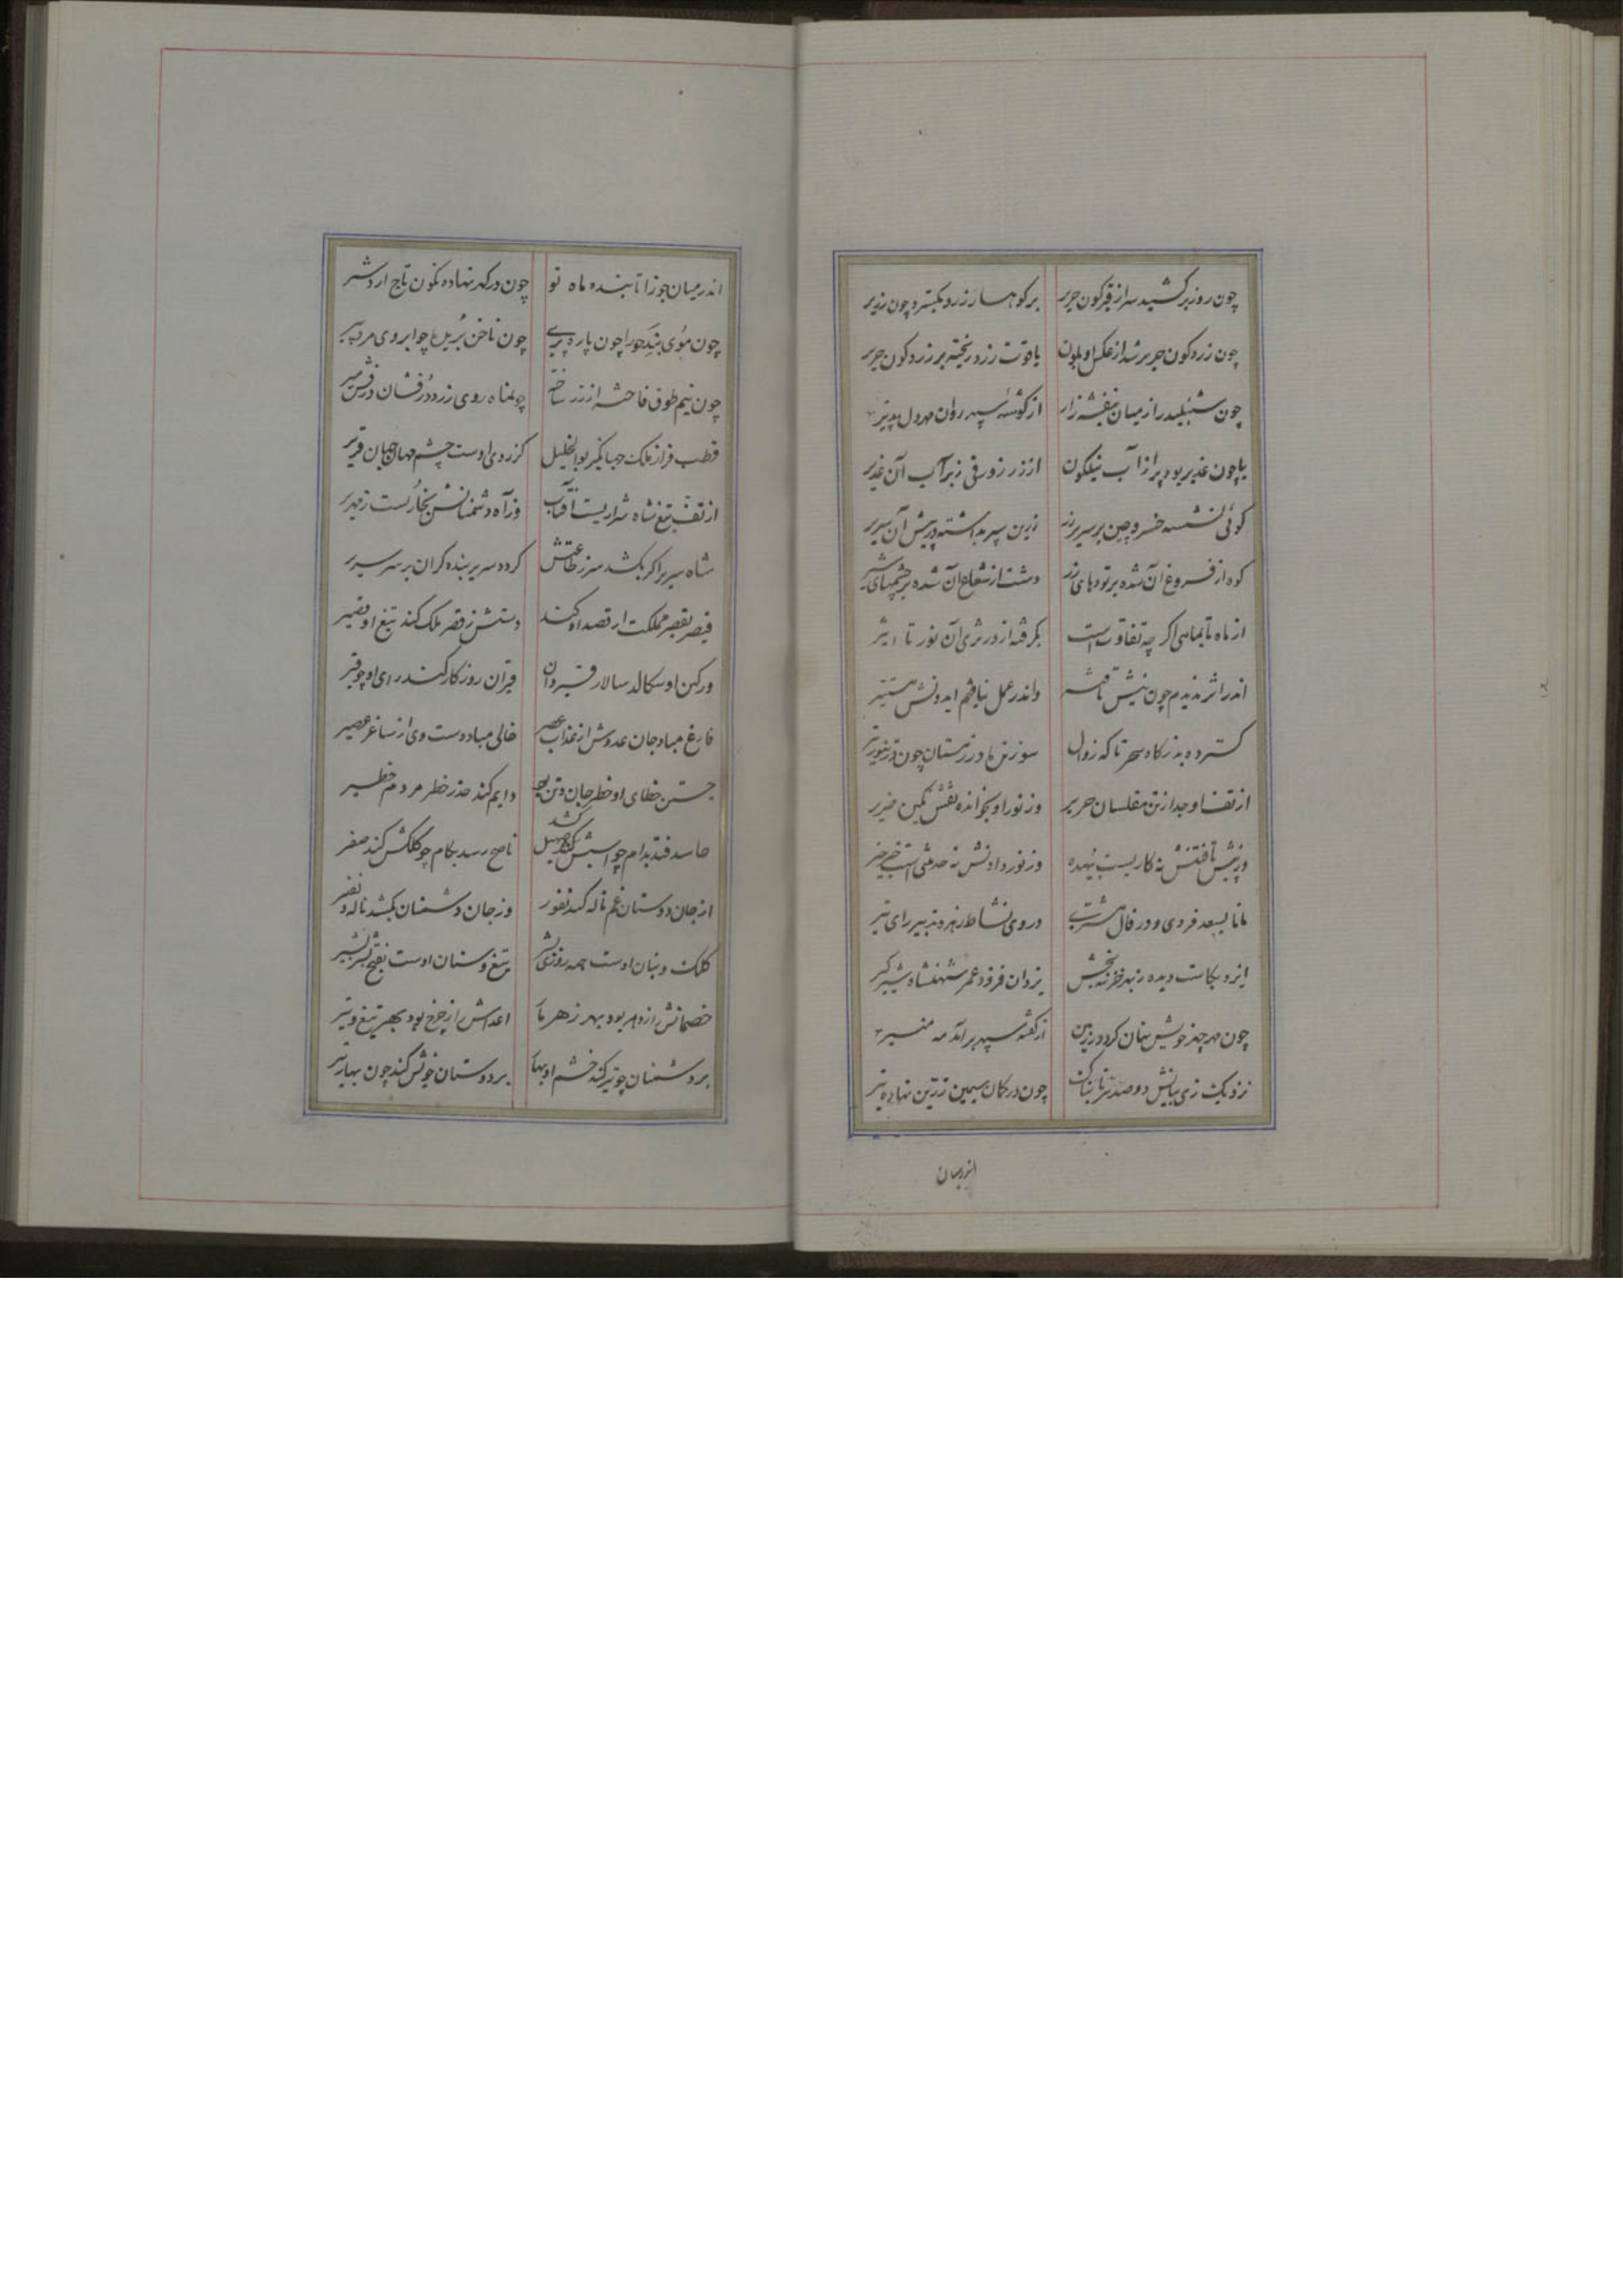 چون روز برکشید سر از قیرگون حریر بر کوهسار زرد بگسترد چون زریر
چون زردگون حریر شد از عکس او بلون یاقوت زرد ریخته بر زردگون حریر
چون شنبلید راز میان بنفشه‌زار از گوشه سپهر روان مهر دل پذیر
یا چون غدیر بود پر از آب نیلگون از زر زورقی زبر آب آن غدیر
گوئی نشسته خسرو چین بر سریر زر زرین سپر بداشته در پیش آن سریر
کوه از فروغ آن شده بر توده‌های زر دشت از شعاع آن شده بر چشمهای شیر
از ماه تا بماهی اگر چه تفاوت است بگرفته از در ثری آن نور تا اثیر
اندر اثر ندیدم چون نیش تافته واندر عمل نیافتم ایدونش مستنیر
گسترده بد ز گاه سحر تا گه زوال سوز تن‌ها در زمستان چون در تنور تیر
از تف او جدا ز تن مفلسان حریر وز نور او بخوانده نقش نگین ضریر
در پیش تافتنش نه کاریست بیهده وز نور دادنش نه حدیثی است خیر خیر
مانا بسعد فردی و در فال مشتری در وی نشاط زهره و تدبیر رای تیر
ایزد بکاست دیده ز بهر خزینه‌بخش یزدان فزود عمر شهنشاه شیرگیر
چون مهر چهر خویش نهان کرد در زمین از گوشه سپهر برآمد مه منیر
نزدیک زی بیانش دو صد تابناک چون در کمان سیمین زرین نهاده تیر
اندر میان
اندر میان جوزا تابنده ماه نو چون در کمر نهاده نگون تاج اردشیر
چون موی بند حورا چون پاره پری چون ناخن بریده چو ابروی مرد پیر
چون نیم طوق فاخته از زر ساخته چو ماه روی زرد درفشان درفش میر
قطب فراز ملک جهانگیر بوالخلیل کز روی اوست چشم مهان جهان قریر
از تف تیغ شاه شراریست آفتاب وز آه دشمنانش بخاریست زمهریر
شاه سریر اگر بکشد سر ز طاعتش گردد سریر بنده گران بر سر سریر
قیصر بقصر مملکت ار قصد او کند دستش ز قصر ملک کند تیغ او قصیر
ور کین او سگالد سالار قیروان قیران روزگار کند رای او چو قیر
فارغ مباد جان عدوش از عذاب عصر خالی مباد دست وی از ساغر عصیر
جستن خطای او خطر جان و تن بود دایم کند حذر خطر مردم خطیر
حاسد فتد بدام چو اسبش کشد صهیل ناصح رسد بکام چو کلکش کند صفیر
از جان دوستان غم ناله کند نفور وز جان دشمنان بکشد ناله و نفیر
کلک و بنان اوست همه روزی بشر تیغ و سنان اوست بفتح و ظفر بشیر
خصمانش را ز دهر بود بهر زهر مار اعداش را ز چرخ بود بهر تیغ و تیر
بر دشمنان چو تیر کند خشم او بهار بر دوستان خوش کند چون بهار تیر